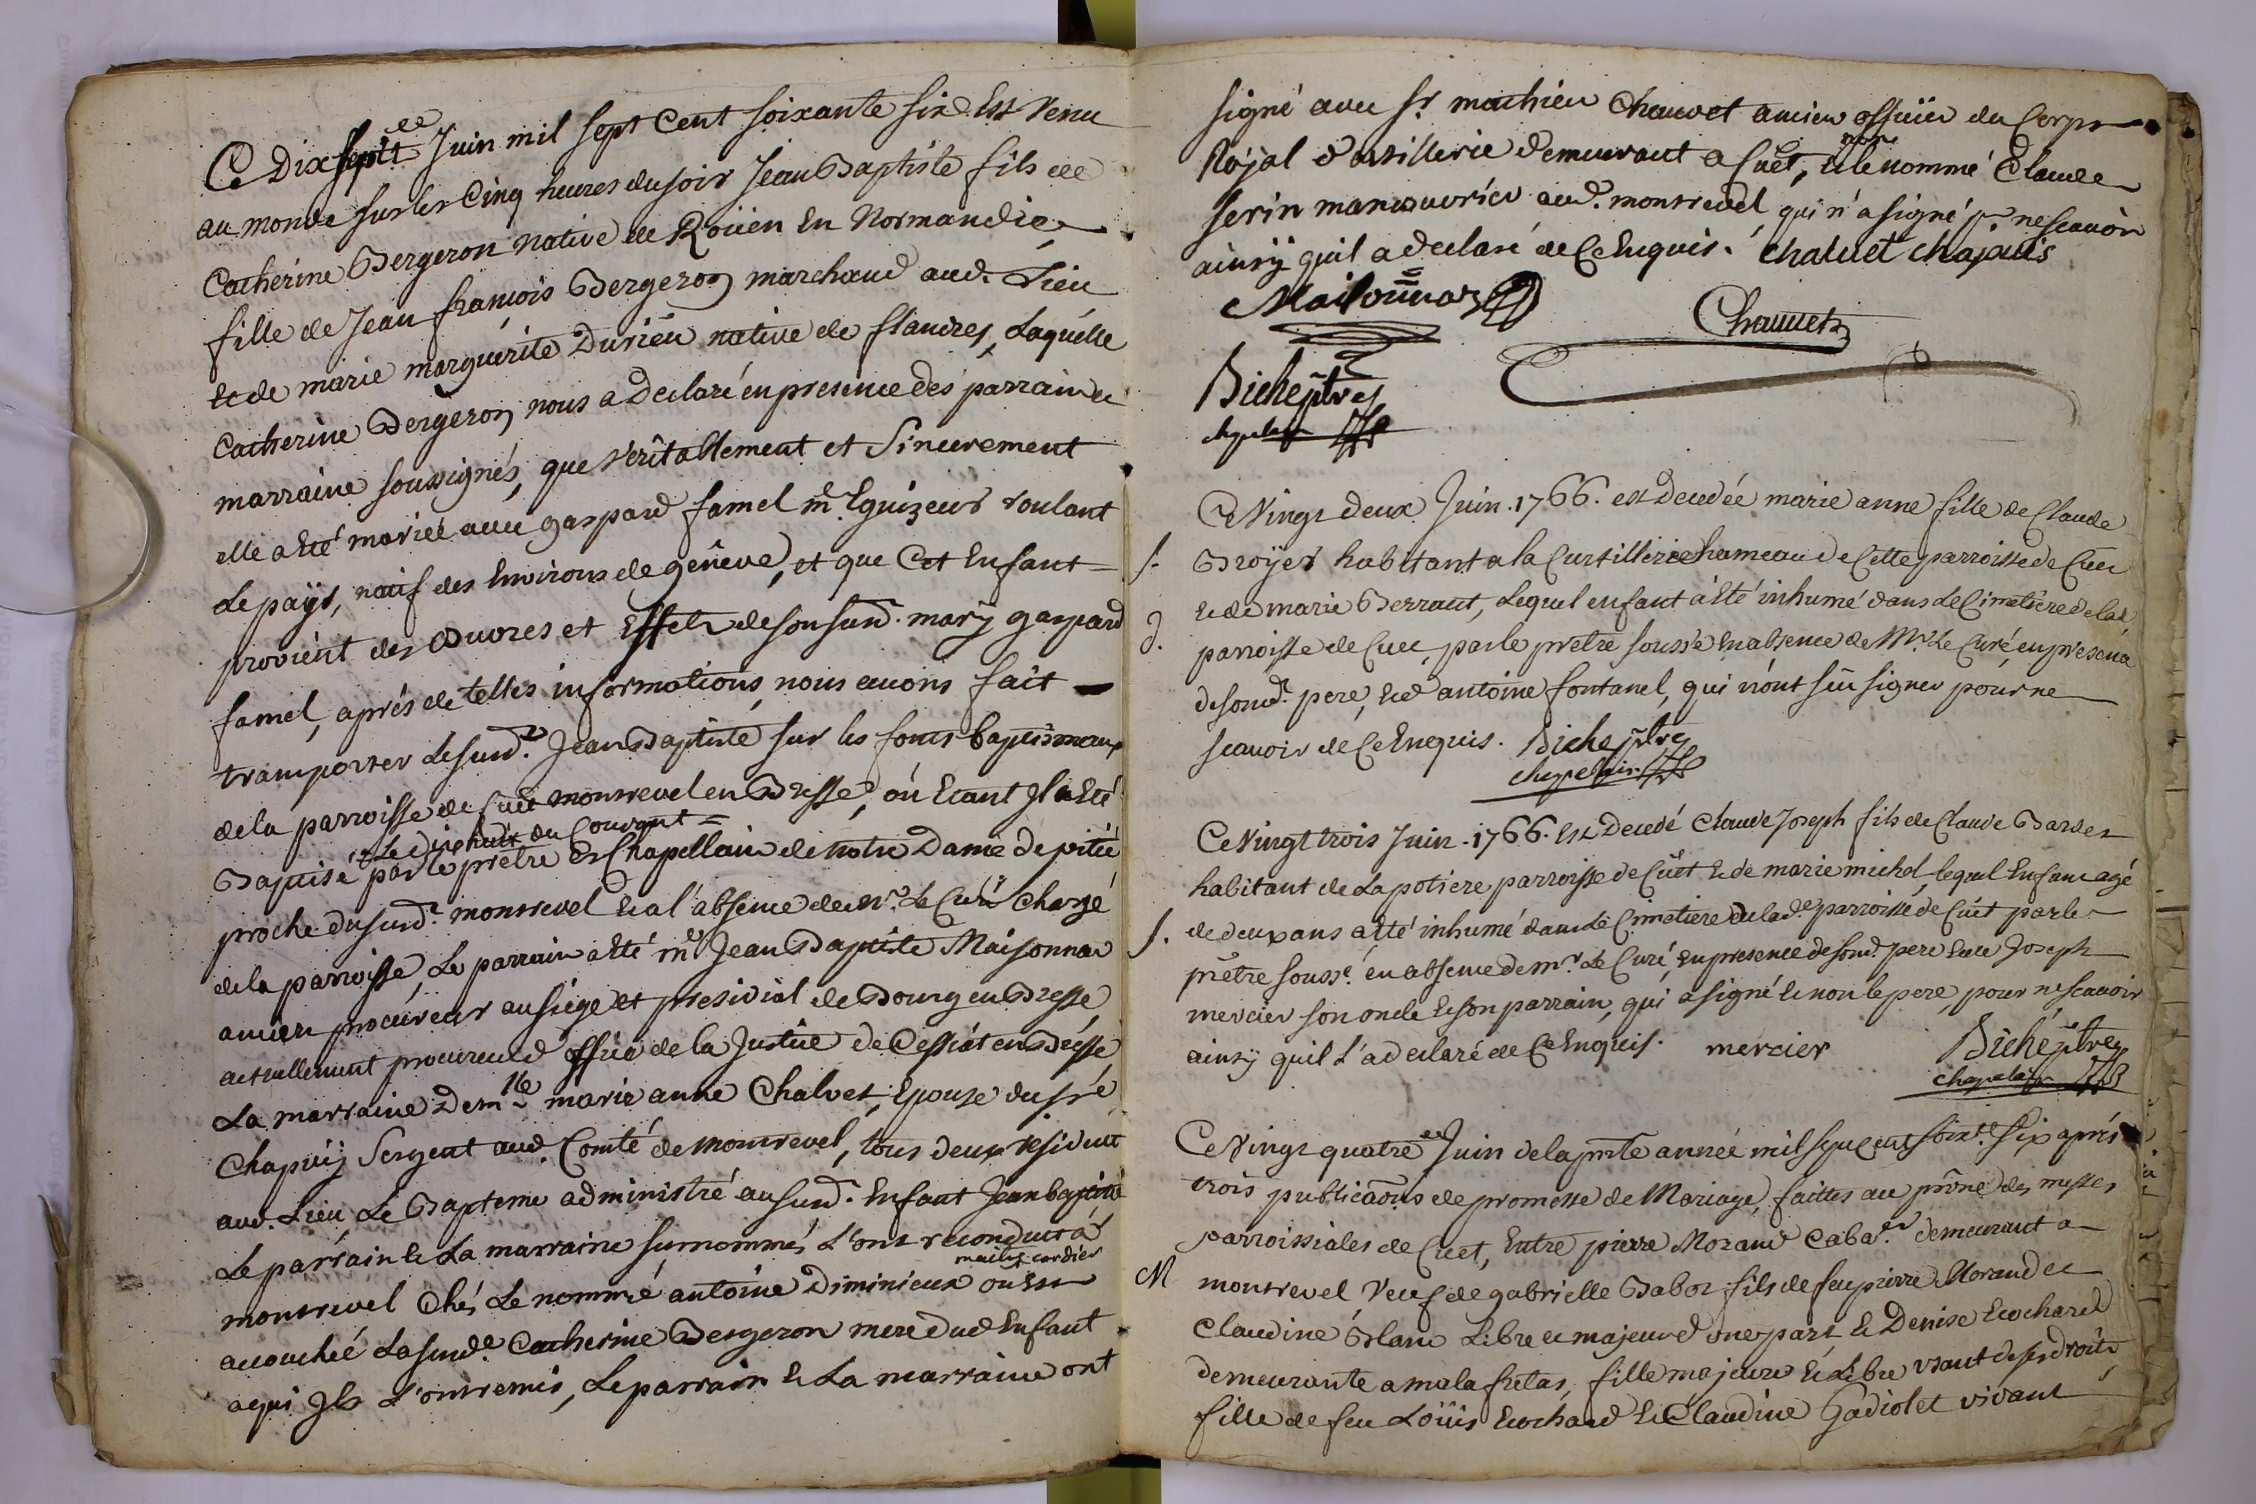 Ce Dix sept.e Juin mil sept Cent soixante six Est Venu
au monde sur les Cinq heures du soir Jean Baptiste fils de
Catherine Bergeron native de Roüen En Normandie
fille de Jean françois Bergeron marchand aud. Lieu
Et de marie marguerite Durieu native de flandres, Laquelle
Catherine Bergeron nous a Declaré en presence des parrain et
marraine soussignés, que Véritablement et Sincerement
elle a Eté mariée avec gaspard famel m.e Eguizeur roulant
Le païs, natif des Environs de genêve, et que Cet Enfant
provient des œuvres et Effets de son sud. mary gaspard
famel, aprés de telles informations nous avons fait
transporter Le sud.t Jean Baptiste sur les fonts baptismaux
de la parroisse de Cuet montrevel en Bresse, où Etant Il a Eté
Le dix huit du Courant
Baptisé par le prêtre Et Chapellain de notre Dame de pitié
proche du sud.t montrevel Et a l'absence de Mr. Le Curé Chargé
de la parroisse, Le parrain a Eté m.e Jean Baptiste Maisonnas
ancien procureur au siége et presidial de Bourg en Bresse,
actuellement procureur d'office de la Justice de Cessiat en Bresse
La marraine Dem.lle marie anne Chalvet, Epouse du sr.
Chapuÿ Sergent aud. Comté de Montrevel, tous deux residant
aud. Lieu, Le Bapteme administré au sud. Enfant Jean baptiste
Le parrain Et La marraine surnommés L'ont reconduit à
maitre cordier
montrevel Chés Le nommé antoine Diminieux ou Est
accouchée La sud.e Catherine Bergeron mere dud Enfant
a qui Ils L'ont remis, Le parrain Et La marraine ont
signé avec Sr. mathieu Chauvet ancien officier du Corps
non
Roÿal d'artillerie demeurant a Cuet, Et le nommé Claude
serin manouvrier aud. montrevel qui n'a signé pr ne scavoir
ainsy quil a declaré de Ce Enquis. Chalvet Chapuis
Maisonnas
Chauvet
Biche ptre
chapelain
Ce Vingt deux Juin 1766. est Decedée marie anne fille de Claude
Broÿer habitant a la Curtillerie hameau de Cette parroisse de Cuet
Et de marie Berraut, Lequel enfant a Eté inhumé dans Le Cimetiere de lad
parroisse de Cuet, par le prêtre souss.é En absence de Mr. Le Curé, en presence
de son d. pere, Et d antoine fontanel, qui n'ont sçu signer pour ne
scavoir de Ce Enquis. Biche ptre
chapelain
Ce Vingt trois Juin 1766. Est Decedé Claude Joseph fils de Claude Bardet
habitant de La potiere parroisse de Cuet Et de marie michel, lequel Enfant agé
de deux ans a Eté inhumé dans Le Cimetiere de lad.e parroisse de Cuet par le
prêtre souss.é en absence de mr. Le Curé, En presence de son d. pere Et de Joseph
mercier son oncle Et son parrain, qui a signé Et non le pere, pour ne scavoir
ainsy quil L'a declaré de Ce Enquis. mercier Biche ptre
chapelain
Ce Vingt quatre Juin de la pnte année mil sept Cent soixte. Six aprés
trois publicãons de promesse de Mariage, faittes au prône des messes
parroissiales de Cuet, Entre pierre Morand Cabar. demeurant a
M
montrevel, Veuf de gabrielle Babot fils de feu pierre Morand et
Claudine Blanc Libre et majeur d'une part, Et Denise Ecochard
demeurante a malafretas, fille majeure Et Libre usant de ses droits
fille de feu Loüis Ecochard Et Claudine Gadiolet vivant